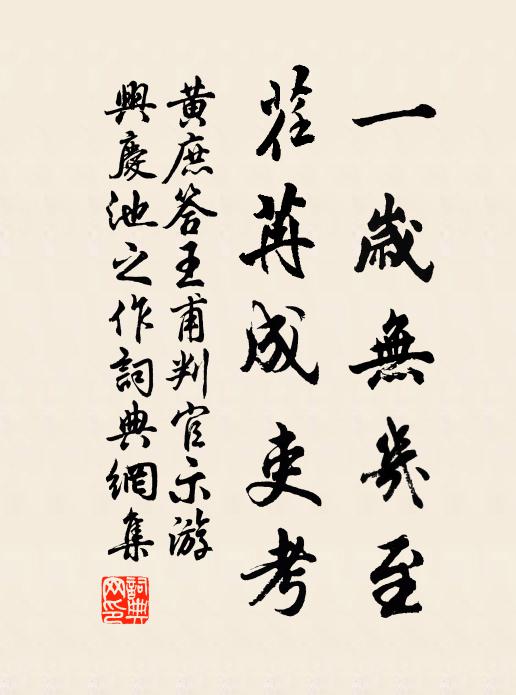 一歲無幾至
荏苒成吏考
黄庶答王甫判官示游
興慶池之作詞典網集
詞典网印